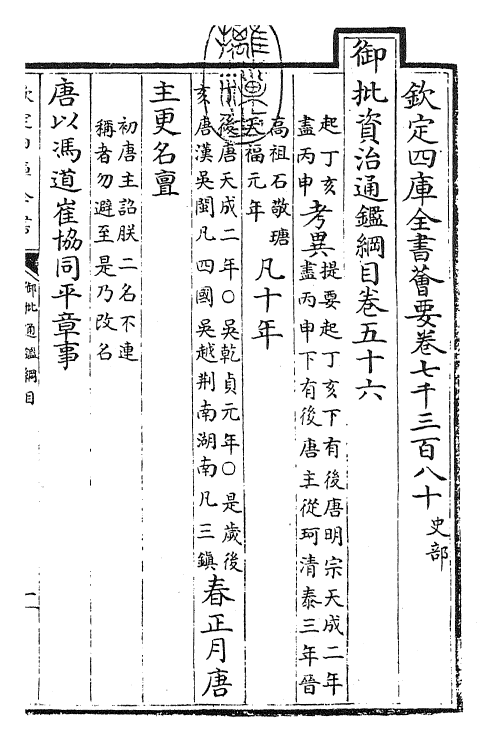 欽定四庫全書薈要卷七千三百八十 史部
御批資治通鑑綱目卷五十六
起丁亥
盡丙申
考異
提要起丁亥下有後唐明宗天成二年
盡丙申下有後唐主從珂清泰三年晉
高祖石敬瑭
天福元年
凡十年
後唐天成二年○吳乾貞元年○是歲後
亥唐漢吳閩凡四國吳越荆南湖南凡三鎮
春正月唐
主更名亶
初唐主詔朕二名不連
稱者勿避至是乃改名
唐以馮道崔協同平章事
御批通鑑綱目